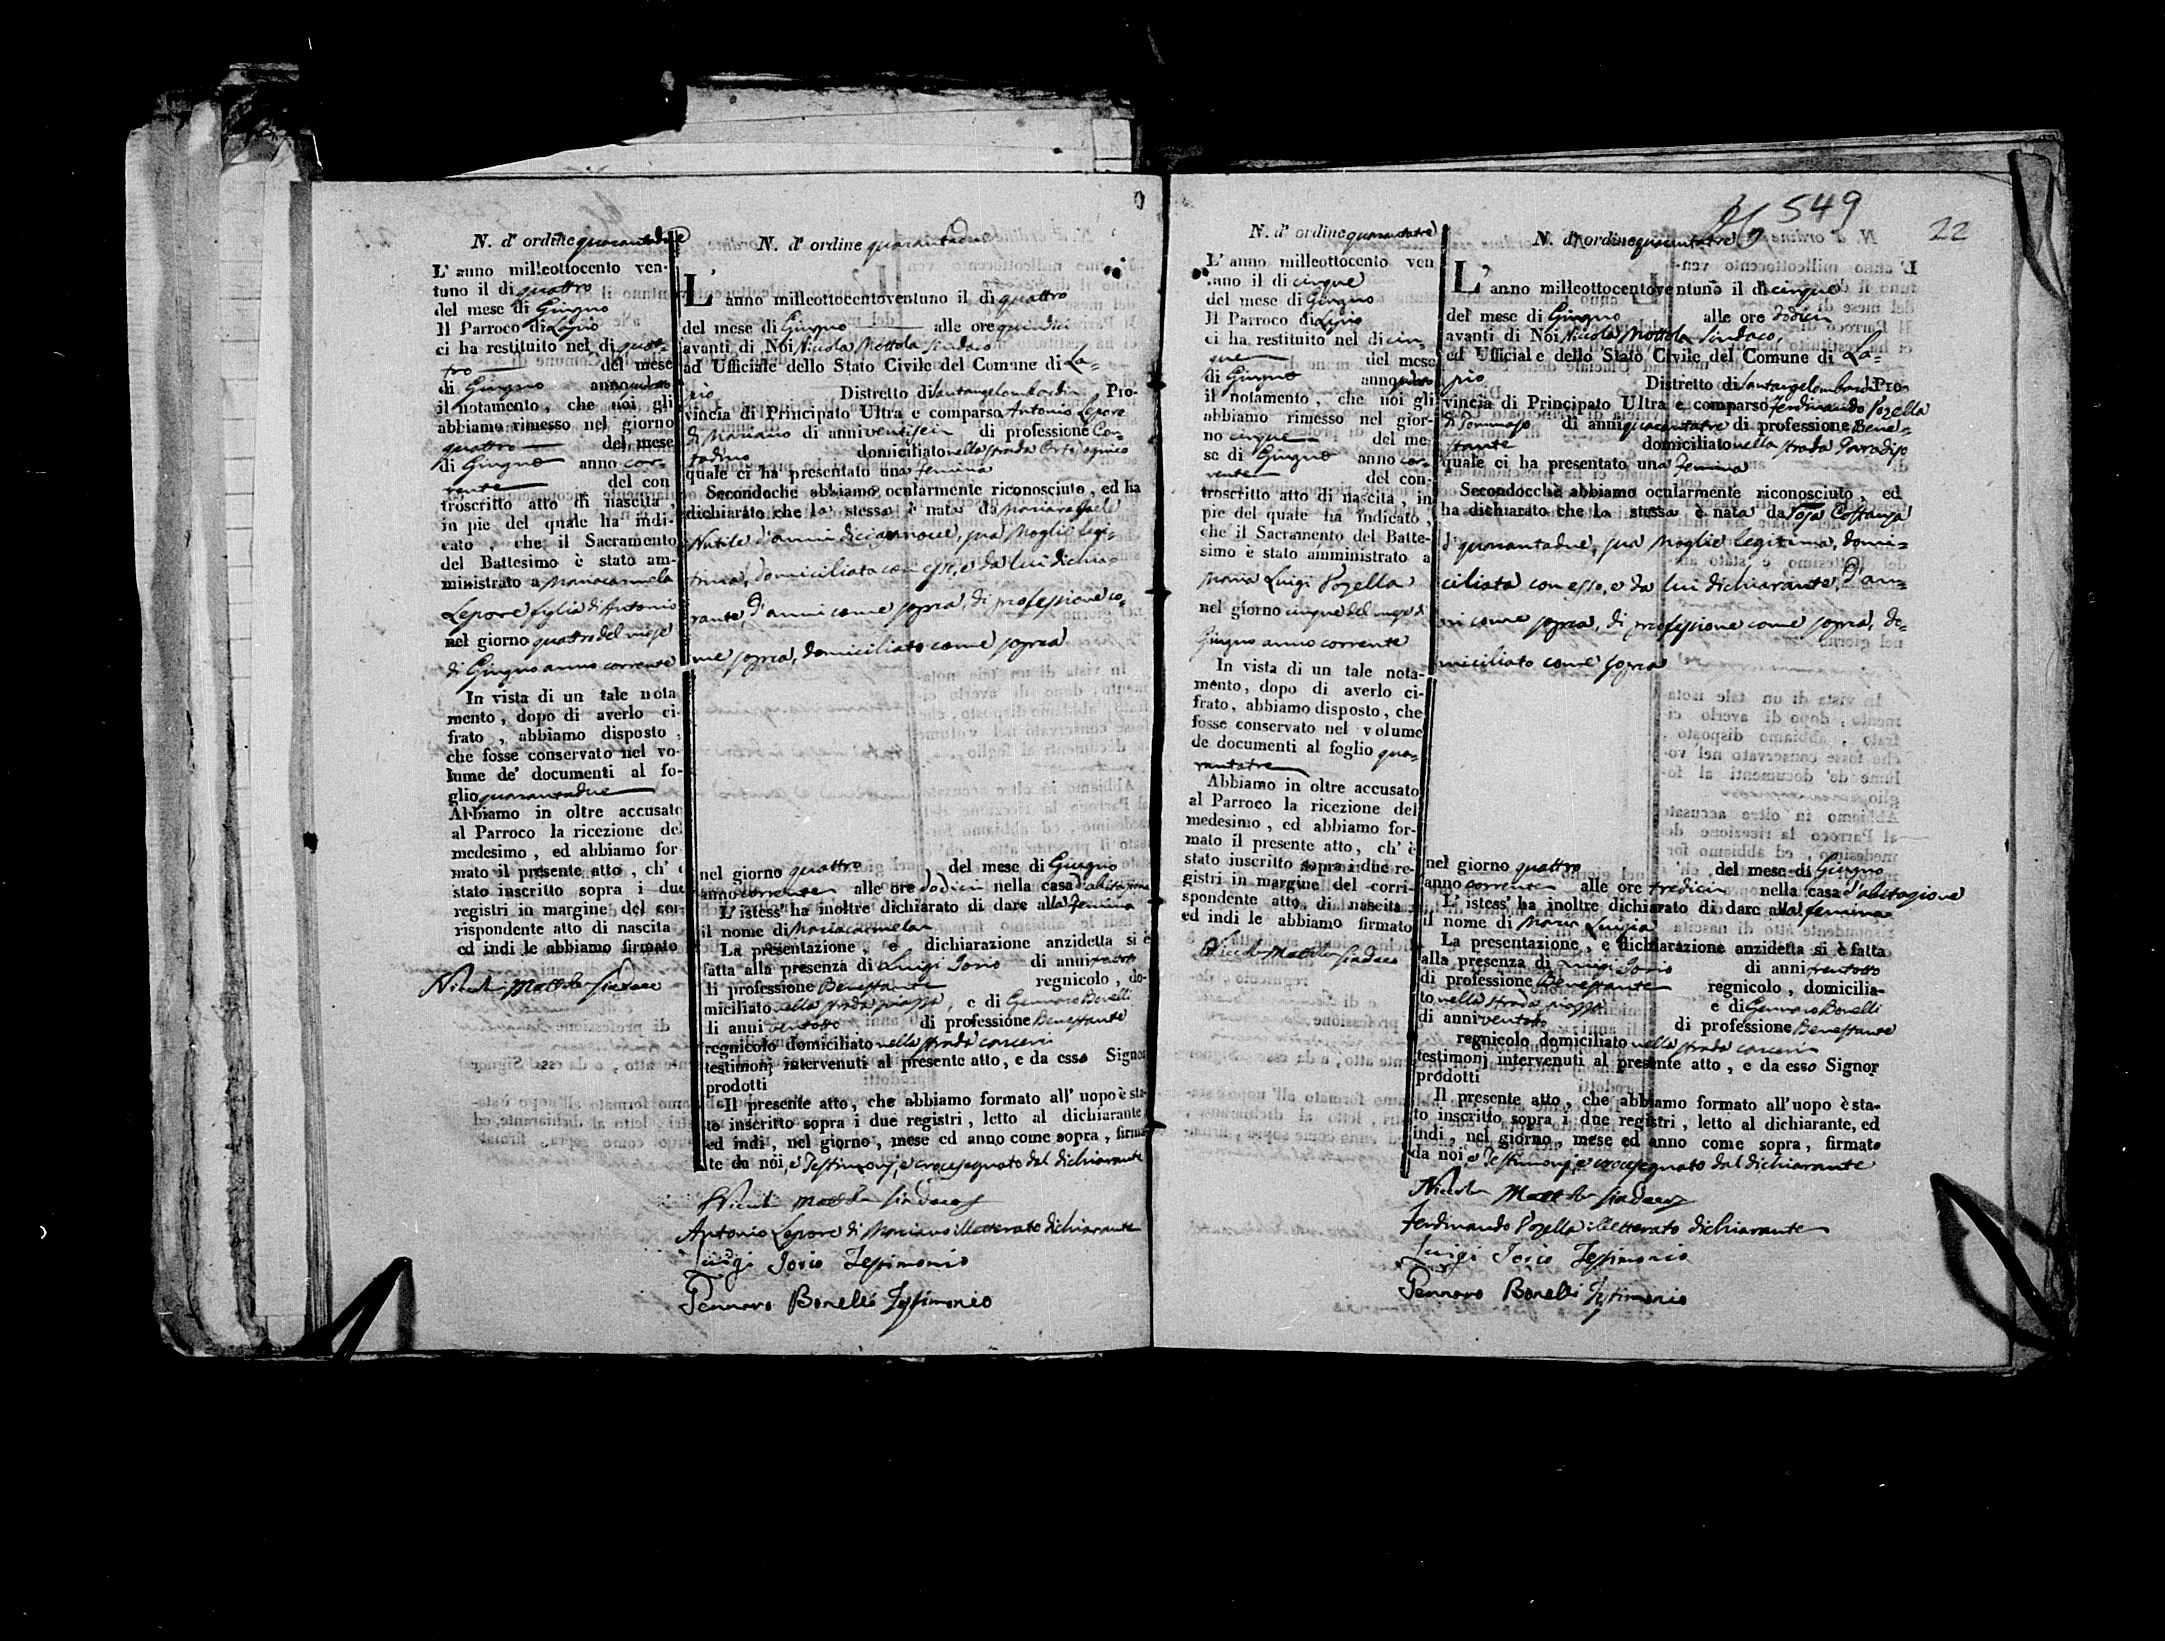 N. d' ordine quarantadue
L' anno milleottocento ven-
tuno il di quattro
del mese di Giugno
Il Parroco di Lapio
ci ha restituito nel di quat-
tro del mese
di Giugno anno
il notamento, che noi gli
abbiamo rimesso nel giorno
quattro del mese
di Giugno anno cor-
rente del con
troscritto atto di nascita,
in pie del quale ha indi-
cato, che il Sacramento
del Battesimo è stato am-
ministrato a Mariacarmela
Lepore figlia di Antonio
nel giorno quattro del mese
di Giugno anno corrente
In vista di un tale nota
mento, dopo di averlo ci-
frato, abbiamo disposto,
che fosse conservato nel vo-
lume de' documenti al fo-
glio quarantadue
Abbiamo in oltre accusato
al Parroco la ricezione del
medesimo, ed abbiamo for
mato il presente atto, ch' è
stato inscritto sopra i due
registri in margine del cor-
rispondente atto di nascita
ed indi le abbiamo firmato
Nicola Mottola Sindaco
N. d' ordine quarantadue
L' anno milleottocentoventuno il di quattro
del mese di Giugno alle ore quindici
avanti di Noi Nicola Mottola Sindaco
ad Uffiziale dello Stato Civile del Comune di La-
pio Distretto di Santangelombardi Pro-
vincia di Principato Ultra e comparso Antonio Lepore
di Mariano di anni ventisei di professione Con-
tadino domiciliato nella strada Orto
quale ci ha presentato una Femina
Secondochè abbiamo ocularmente riconosciuto, ed ha
dichiarato che la stessa è nata da Mariarafaela
Nutile d'anni diciannove, sua Moglie legi-
tima, domiciliata con esso, e da lui dichia-
rante, d'anni come sopra, di professione co-
me sopra, domiciliato come sopra
nel giorno quattro del mese di Giugno
anno corrente alle ore dodici nella casa d'abitazione
L' istess' ha inoltre dichiarato di dare alla Femina
il nome di Mariacarmela
La presentazione, e dichiarazione anzidetta si è
fatta alla presenza di Luigi Iorio di anni
di professione Benestante regnicolo, do-
miciliato nella strada piazza, e di Gennaro Bonelli
di anni ventotto di professione Benestante
regnicolo domiciliato nella strada carceri
testimonj intervenuti al presente atto, e da esso Signor
prodotti
Il presente atto, che abbiamo formato all' uopo è sta-
to inscritto sopra i due registri, letto al dichiarante
ed indi, nel giorno, mese ed anno come sopra, firma
te da noi, e Testimonj, e crocesegnato dal dichiarante
Nicola Mottola Sindaco
Antonio Lepore di Mariano illetterato dichiarante
Luigi Iorio Testimonio
Gennaro Bonelli Testimonio
549
22
N. d' ordine quarantatre
L' anno milleottocento ven
tuno il di cinque
del mese di Giugno
Il Parroco di Lapio
ci ha restituito nel di cin-
que del mese
di Giugno anno
il notamento, che noi gli
abbiamo rimesso nel gior-
no cinque del me-
se di Giugno anno cor-
rente del con-
troscritto atto di nascita, in
pie del quale ha indicato,
che il Sacramento del Batte-
simo è stato amministrato a
Maria Luigi Pozella
nel giorno cinque del mese di
Giugno anno corrente
In vista di un tale nota-
mento, dopo di averlo ci-
frato, abbiamo disposto, che
fosse conservato nel volume
de documenti al foglio qua-
rantatre
Abbiamo in oltre accusato
al Parroco la ricezione del
medesimo, ed abbiamo for-
mato il presente atto, ch' è
stato inscritto sopra i due re-
gistri in margine del corri-
spondente atto di nascita
ed indi le abbiamo firmato
Nicola Mottola Sindaco
N. d' ordine quarantatre
L' anno milleottocentoventuno il di cinque
del mese di Giugno alle ore dodici
avanti di Noi Nicola Mottola Sindaco,
ed Ufficiale dello Stato Civile del Comune di La-
pio Distretto di Santangelombardi Pro-
vincia di Principato Ultra e comparso Ferdinando Pozella
di Tommaso di anni quarantatre di professione Bene-
stante domiciliato nella strada
quale ci ha presentato una Femina
Secondocchè abbiamo ocularmente riconosciuto, ed
ha dichiarato che la stessa è nata da Costanza
d'quarantadue, sua Moglie legitima, domi-
ciliata con esso, e da lui dichiarante, d'an-
ni come sopra, di professione come sopra, do-
miciliato come sopra
nel giorno quattro del mese di Giugno
anno corrente alle ore tredici nella casa d'abitazione
L' istess' ha inoltre dichiarato di dare alla femina
il nome di Maria Luigia
La presentazione, e dichiarazione anzidetta si è fatta
alla presenza di Luigi Iorio di anni trentotto
di professione Benestante regnicolo, domicilia-
to nella strada piazza e di Gennaro Bonelli
di anni ventotto di professione Benestante
regnicolo domiciliato nella strada carceri
testimonj intervenuti al presente atto, e da esso Signor
prodotti
Il presente atto, che abbiamo formato all' uopo è sta-
to inscritto sopra i due registri, letto al dichiarante, ed
indi, nel giorno, mese ed anno come sopra, firmato
da noi, e Testimonj, e crocesegnato dal dichiarante
Nicola Mottola Sindaco
Ferdinando Pozella illetterato dichiarante
Luigi Iorio Testimonio
Gennaro Bonelli Testimonio